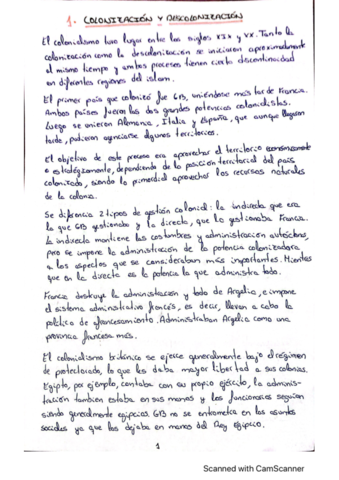 1. COLONIZACIÓN Y DESCOLONIZACIÓN
El colonialismo tuvo lugar entre los siglos XIX y XX. Tanto la
colonización como la descolonización se iniciaron aproximadamente
al mismo tiempo y ambos procesos tienen cierta discontinuidad
en diferentes regiones del islam.
El primer país que colonizó fue GB, uniéndose más tarde Francia.
Ambos países fueron las dos grandes potencias colonialistas.
Luego se unieron Alemania, Italia y España, que aunque llegaron
tarde, pudieron agenciarse algunos territorios.
El objetivo de este proceso era aprovechar el territorio económicamente
o estratégicamente, dependiendo de la posición territorial del país
colonizado, siendo lo primordial aprovechar los recursos naturales
de la colonia.
Se diferencia 2 tipos de gestión colonial: la indirecta que era
la que GB gestionaba y la directa, que lo gestionaba Francia.
La indirecta mantiene las costumbres y administración autóctona,
pero se impone la administración de la potencia colonizadora
a los aspectos que se consideraban más importantes. Mientras
que en la directa es la potencia la que administra todo.
Francia destruye la administración y todo de Argelia, e impone
el sistema administrativo francés, es decir, llevan a cabo la
política de afrancesamiento. Administraban Argelia como una
provincia francesa más.
El colonialismo británico se ejerce generalmente bajo el régimen
de protectorado, lo que les daba mayor libertad a sus colonias.
Egipto, por ejemplo, contaba con su propio ejército, la adminis-
tración también estaba en sus manos y los funcionarios seguían
siendo generalmente egipcios. GB no se entrometía en los asuntos
sociales ya que los dejaba en manos del Rey egipcio.
1
Scanned with CamScanner